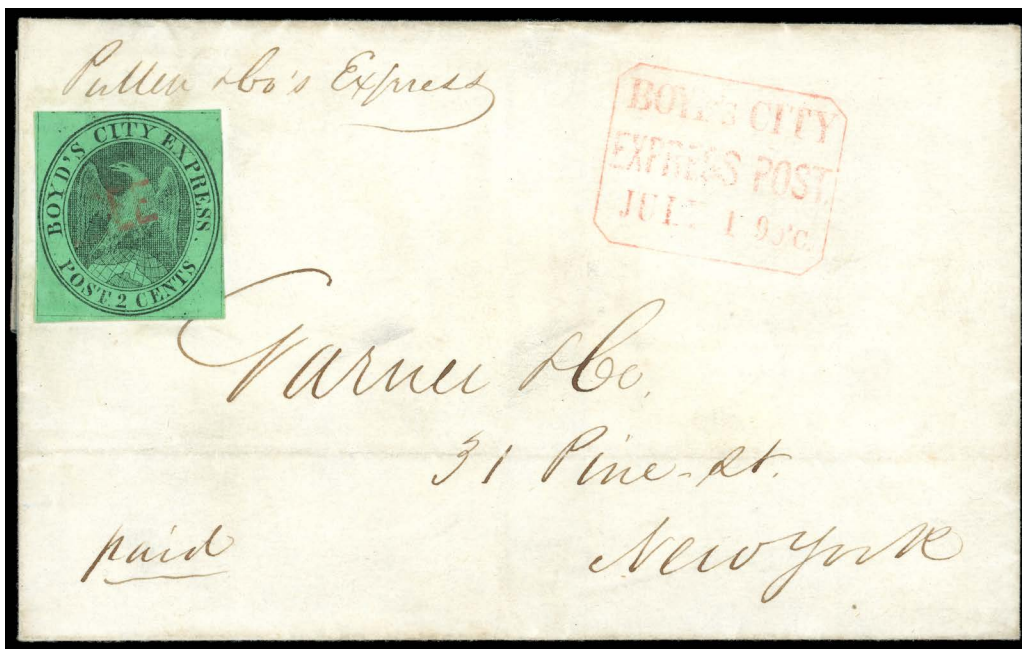 Pullen & Co's Express
BOYD'S CITY EXPRESS.
POST. 2 CENTS
BOYD'S CITY
EXPRESS POST
JUL
Warner & Co.
31 Pine-st.
New York
paid